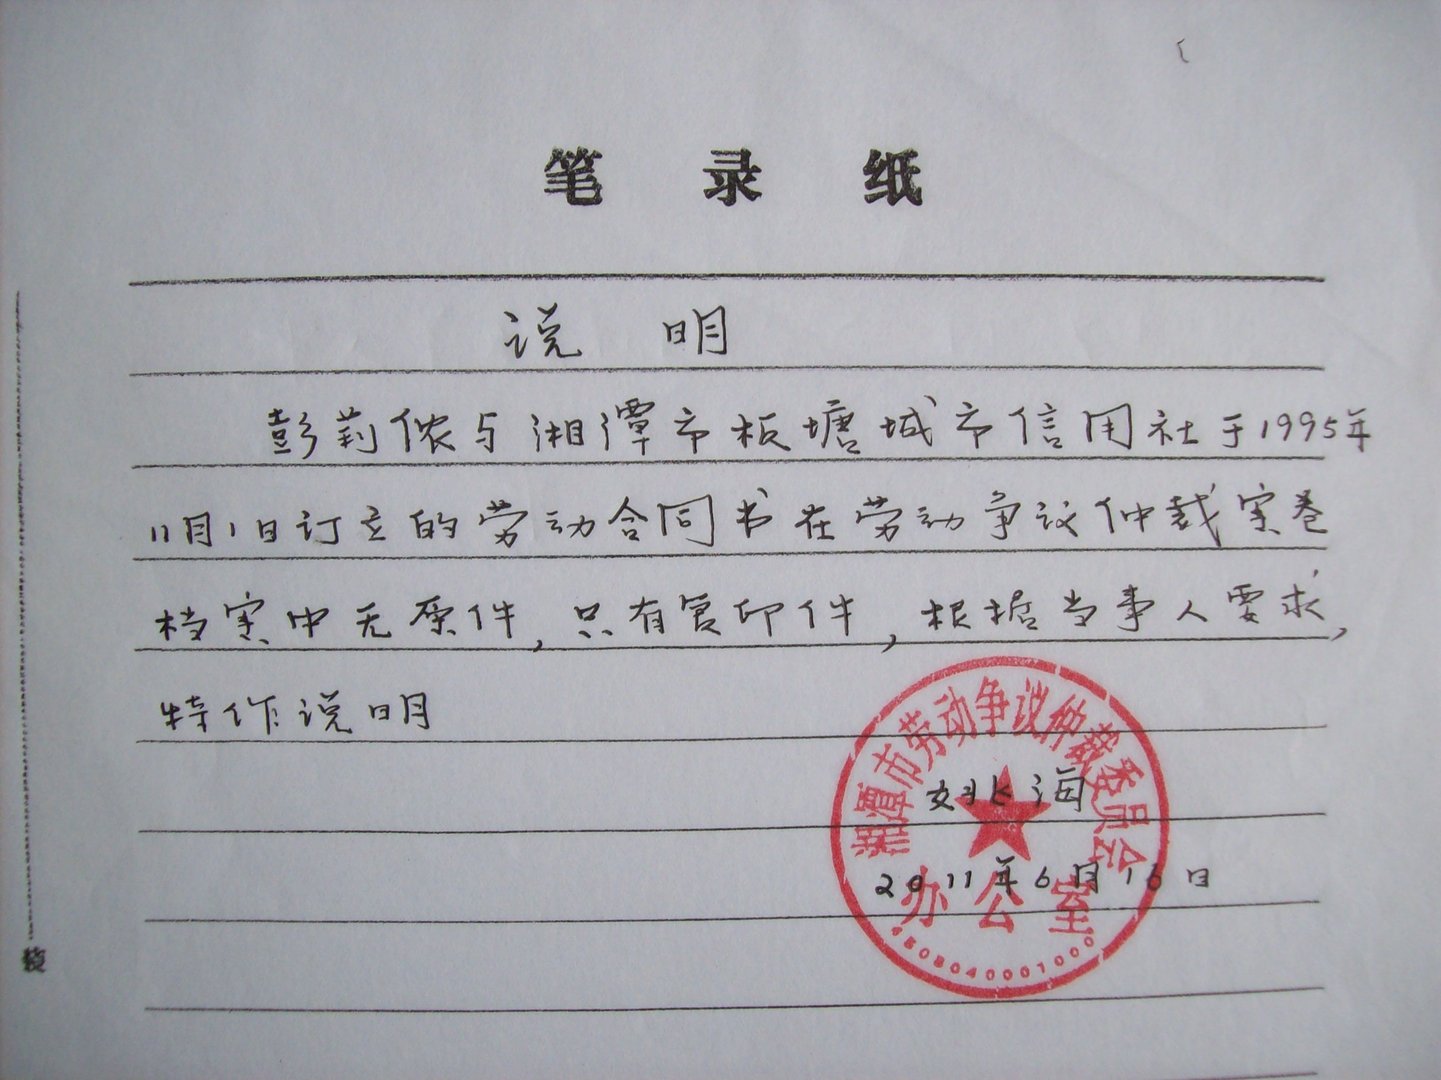 笔录纸
说明
彭莉侬与湘潭市板塘城市信用社于1995年
11月1日订立的劳动合同书在劳动争议仲裁案卷
档案中无原件,只有复印件,根据当事人要求,
特作说明
湘潭市劳动争议仲裁委员会
姚海
2011年6月16日
办公室
装